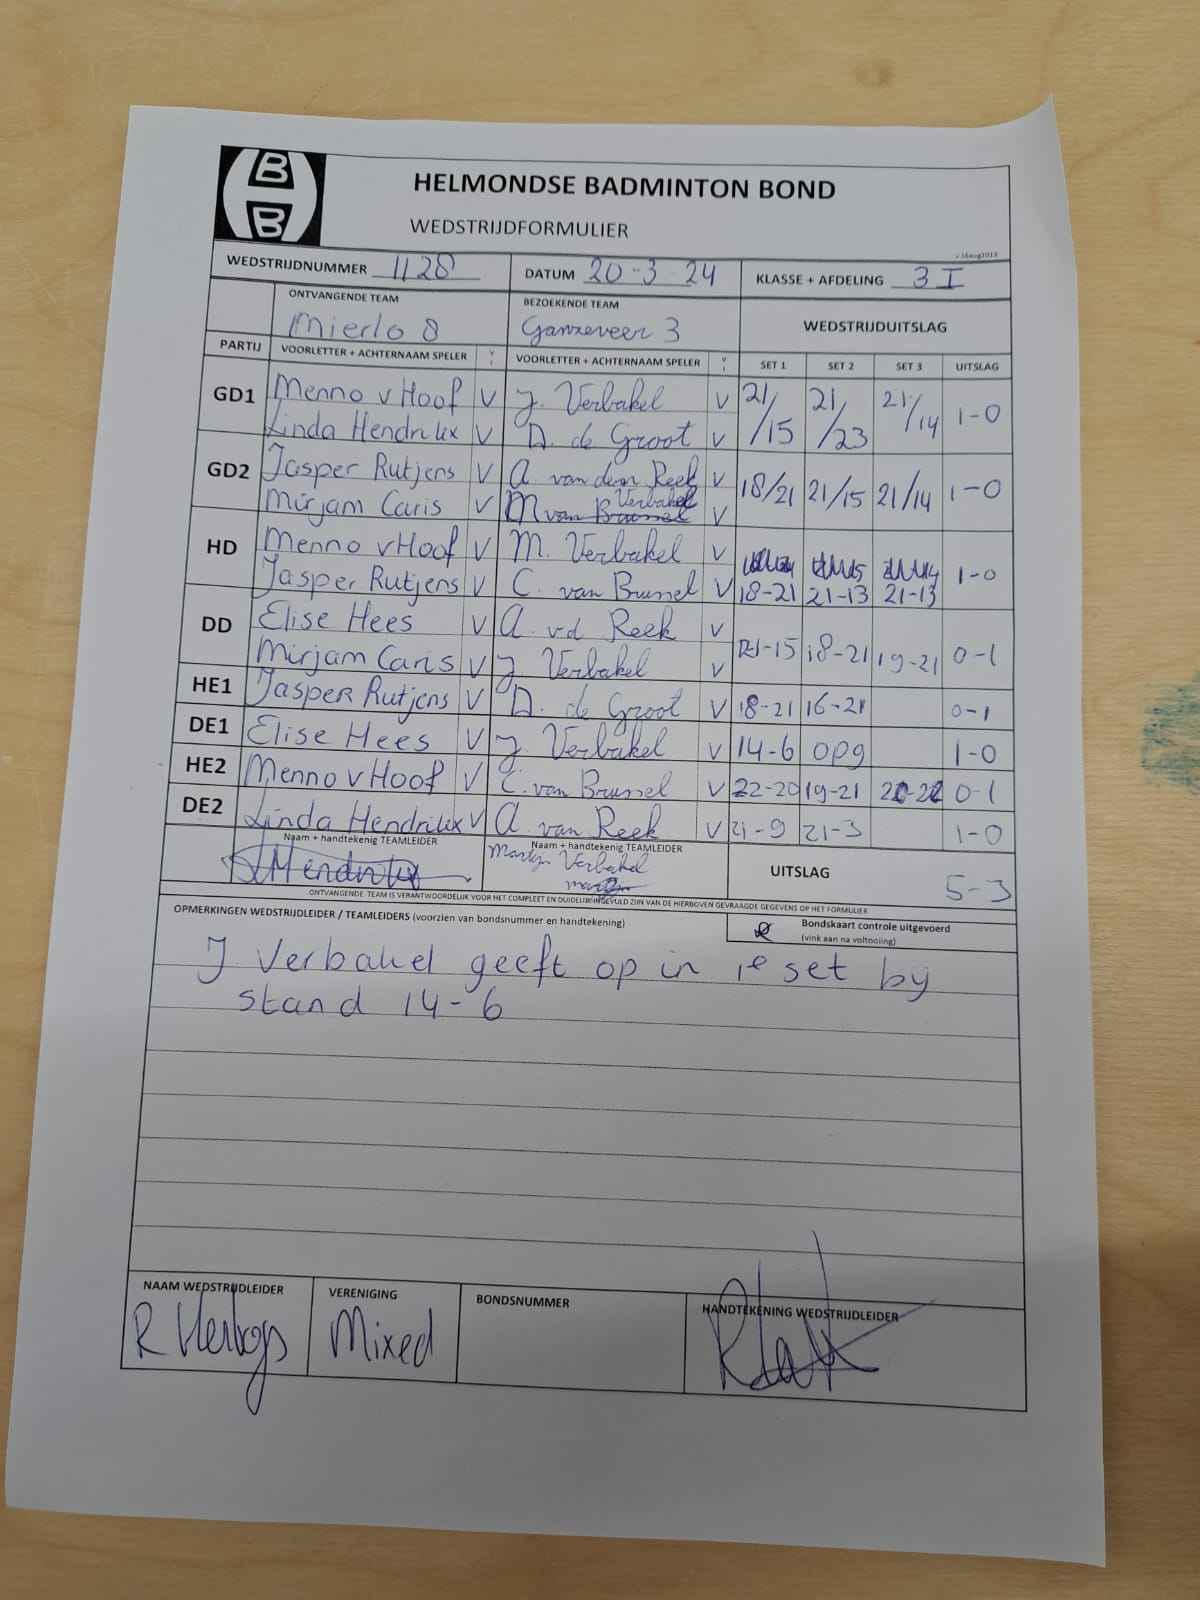 B
B
HELMONDSE BADMINTON BOND
WEDSTRIJDFORMULIER
WEDSTRIJDNUMMER 1128 DATUM 20-3-24 KLASSE + AFDELING 3 I
ONTVANGENDE TEAM BEZOEKENDE TEAM WEDSTRIJDUITSLAG
Mierlo 8 Ganzeveer 3
PARTIJ VOORLETTER + ACHTERNAAM SPELER V VOORLETTER + ACHTERNAAM SPELER V SET 1 SET 2 SET 3 UITSLAG
GD1 Menno v Hoof V J. Verbakel V 21/15 21/23 21/14 1-0
Linda Hendrikx V D. de Groot V
GD2 Jasper Rutjens V A. van den Reek V 18/21 21/15 21/14 1-0
Mirjam Caris V M Verbakel V
HD Menno v Hoof V M. Verbakel V
Jasper Rutjens V C. van Brussel V 18-21 21-13 21-13 1-0
DD Elise Hees V A. v.d. Reek V 21-15 18-21 19-21 0-1
Mirjam Caris V J Verbakel V
HE1 Jasper Rutjens V D. de Groot V 18-21 16-21 0-1
DE1 Elise Hees V J Verbakel V 14-6 opg 1-0
HE2 Menno v Hoof V C. van Brussel V 22-20 19-21 20-22 0-1
DE2 Linda Hendrikx V A. van Reek V 21-9 21-3 1-0
Naam + handtekenig TEAMLEIDER Naam + handtekenig TEAMLEIDER
Hendrikx Martijn Verbakel
UITSLAG 5-3
ONTVANGENDE TEAM IS VERANTWOORDELIJK VOOR HET COMPLEET EN DUIDELIJK INGEVULD ZIJN VAN DE HIERBOVEN GEVRAAGDE GEGEVENS OP HET FORMULIER
OPMERKINGEN WEDSTRIJDLEIDER / TEAMLEIDERS (voorzien van bondsnummer en handtekening) Bondskaart controle uitgevoerd
(vink aan na voltooiing)
J Verbakel geeft op in 1e set by
stand 14-6
NAAM WEDSTRIJDLEIDER VERENIGING BONDSNUMMER HANDTEKENING WEDSTRIJDLEIDER
R Mixed